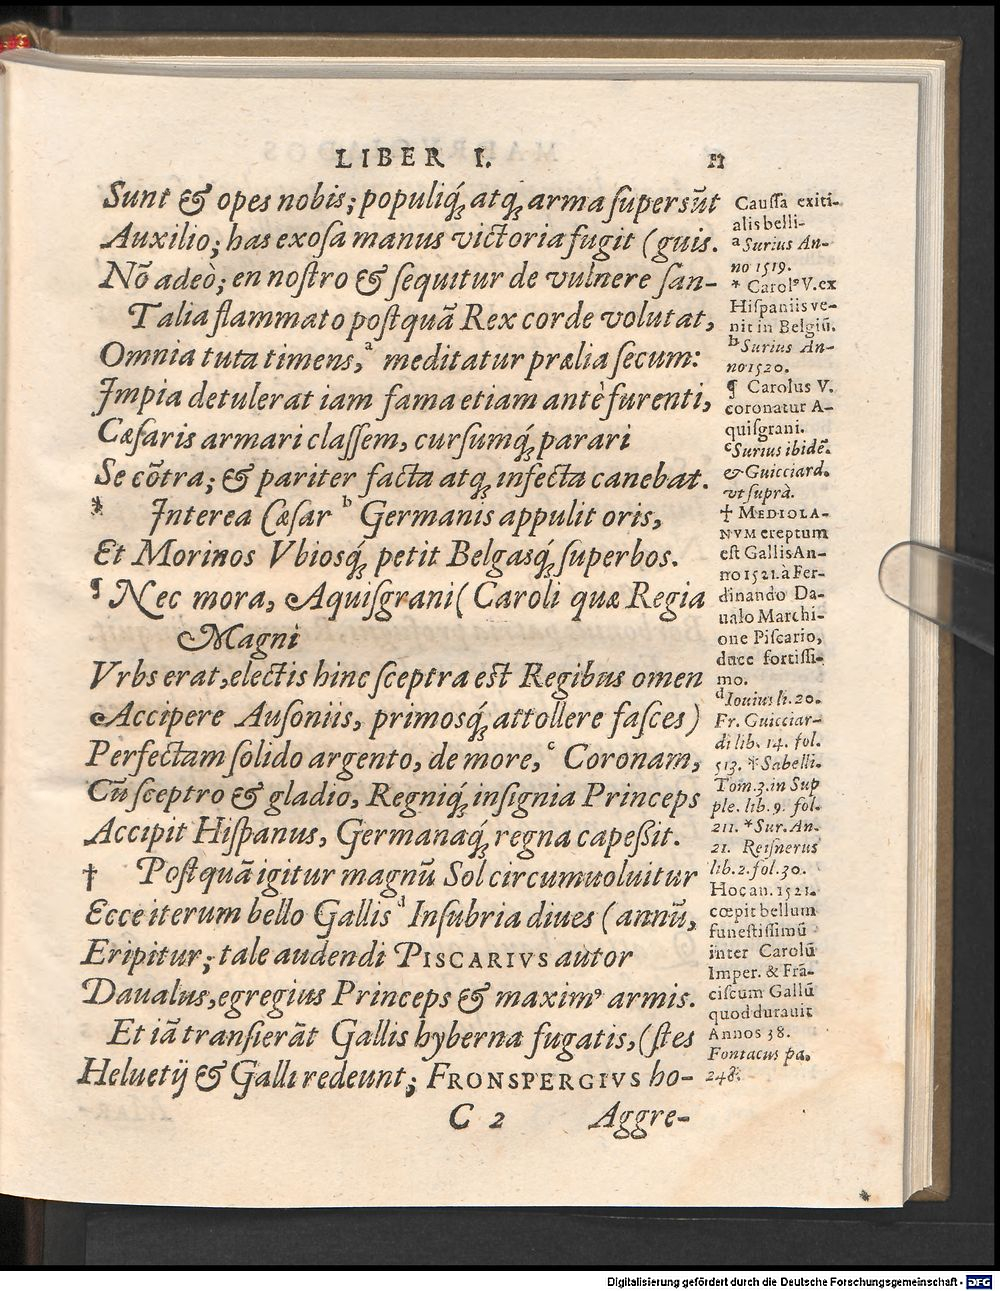 LIBER I.
11
Sunt & opes nobis; populiq́ꝫ atqꝫ arma ſupersūt
Auxilio; has exoſa manus victoria fugit (guis.
Nō adeò; en noſtro & ſequitur de vulnere ſan-
Talia flammato poſtquā Rex corde volutat,
Omnia tuta timens,ᵃ meditatur prælia ſecum:
Impia detulerat iam fama etiam antè furenti,
Cæſaris armari claſſem, curſumq́ꝫ parari
Se cōtra; & pariter facta atqꝫ infecta canebat.
* Interea Cæſar ᵇ Germanis appulit oris,
Et Morinos Vbiosq́ꝫ petit Belgasq́ꝫ ſuperbos.
¶ Nec mora, Aquiſgrani (Caroli quæ Regia
Magni
Vrbs erat, electis hinc ſceptra est Regibus omen
Accipere Auſoniis, primosq́ꝫ attollere faſces)
Perfectam ſolido argento, de more,ᶜ Coronam,
Cū ſceptro & gladio, Regniq́ꝫ inſignia Princeps
Accipit Hiſpanus, Germanaq́ꝫ regna capeßit.
† Poſtquā igitur magnū Sol circumuoluitur
Ecce iterum bello Gallis ᵈ Inſubria diues (annū,
Eripitur; tale audendi PISCARIVS autor
Daualus, egregius Princeps & maximꝰ armis.
Et iā tranſierāt Gallis hyberna fugatis, (ſtes
Heluetij & Galli redeunt; FRONSPERGIVS ho-
C 2
Aggre-
Cauſſa exiti-
alis belli-
ᵃ Surius An-
no 1519.
* Carolꝰ V. ex
Hiſpaniis ve-
nit in Belgiū.
ᵇ Surius An-
no 1520.
¶ Carolus V.
coronatur A-
quiſgrani.
ᶜ Surius ibidē.
& Guicciard.
vt ſuprà.
† MEDIOLA-
NVM ereptum
eſt Gallis An-
no 1521. à Fer-
dinando Da-
ualo Marchi-
one Piſcario,
duce fortiſſi-
mo.
ᵈ Iouius li. 20.
Fr. Guicciar-
di lib. 14. fol.
513. * Sabelli.
Tom. 3. in Sup
ple. lib. 9. fol.
211. * Sur. An.
21. Reiſnerus
lib. 2. fol. 30.
Hoc an. 1521.
cœpit bellum
funeſtiſſimū
inter Carolū
Imper. & Frā-
ciſcum Gallū
quod durauit
Annos 38.
Fontacus pa.
248.
Digitalisierung gefördert durch die Deutsche Forschungsgemeinschaft - DFG